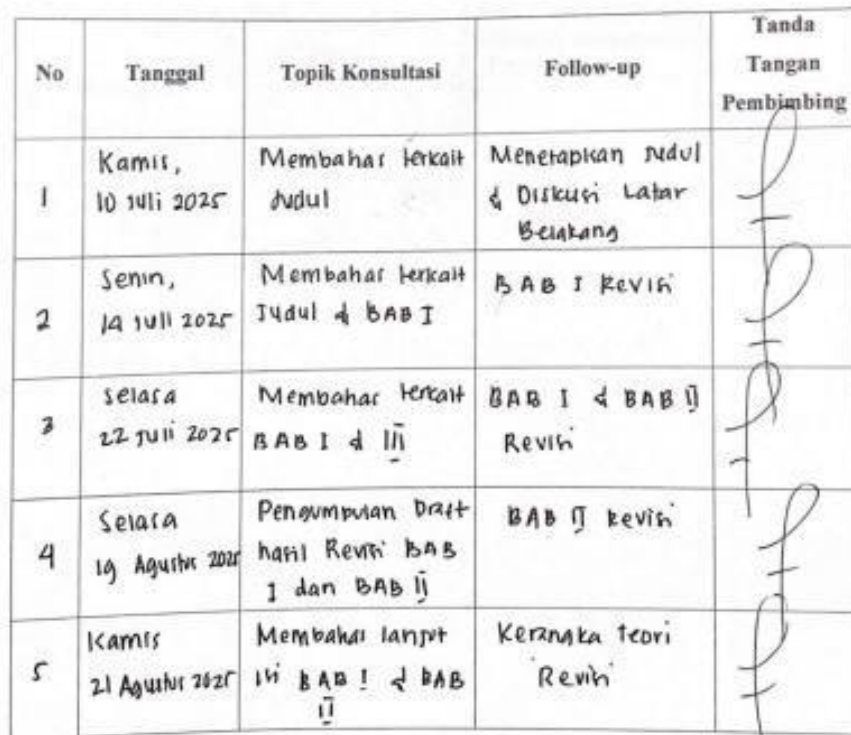 No Tanggal Topik Konsultasi Follow-up Tanda Tangan Pembimbing
1
Kamis,
10 Juli 2025
Membahas terkait
Judul
Menetapkan Judul
& Diskusi Latar
Belakang
2
Senin,
14 Juli 2025
Membahas terkait
Judul & BAB I
BAB I Revisi
3
Selasa
22 Juli 2025
Membahas terkait
BAB I & III
BAB I & BAB II
Revisi
4
Selasa
19 Agustus 2025
Pengumpulan Draft
hasil Revisi BAB
I dan BAB II
BAB II Revisi
5
Kamis
21 Agustus 2025
Membahas lanjut
isi BAB I & BAB
II
Kerangka teori
Revisi